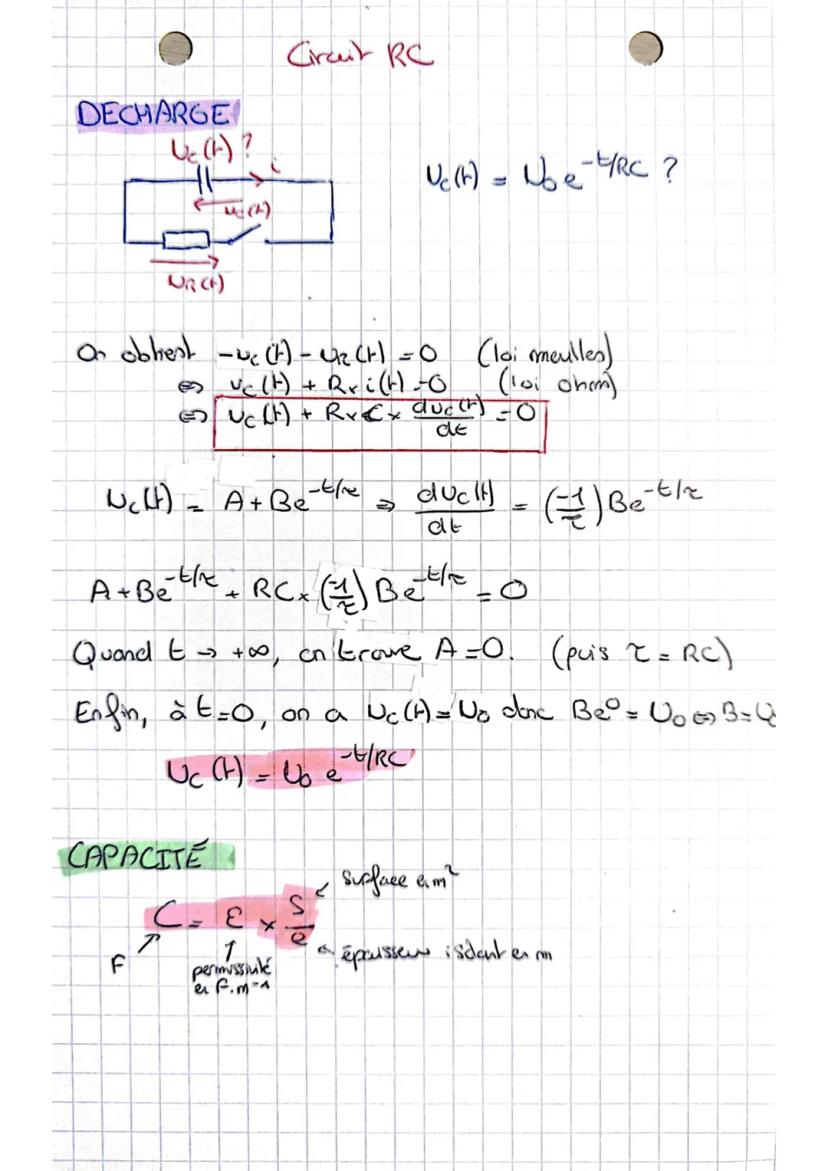 Circuit RC
DECHARGE
Uc(t) ?
i
uc(t)
UR(t)
Uc(t) = U₀e^-t/RC ?
On obtient -uc(t) - uR(t) = 0 (loi meulles)
⇔ uc(t) + R×i(t) = 0 (loi ohm)
⇔ uc(t) + R×C× duc(t)/dt = 0
Uc(t) = A + Be^-t/τ ⇒ dUc(t)/dt = (-1/τ)Be^-t/τ
A + Be^-t/τ + RC×(-1/τ)Be^-t/τ = 0
Quand t → +∞, on trouve A = 0. (puis τ = RC)
Enfin, à t=0, on a Uc(t) = U₀ donc Be⁰ = U₀ ⇔ B = U
Uc(t) = U₀ e^-t/RC
CAPACITÉ
C = ε × S/e
surface en m²
épaisseur isolant en m
F
permissivité
en F.m⁻¹